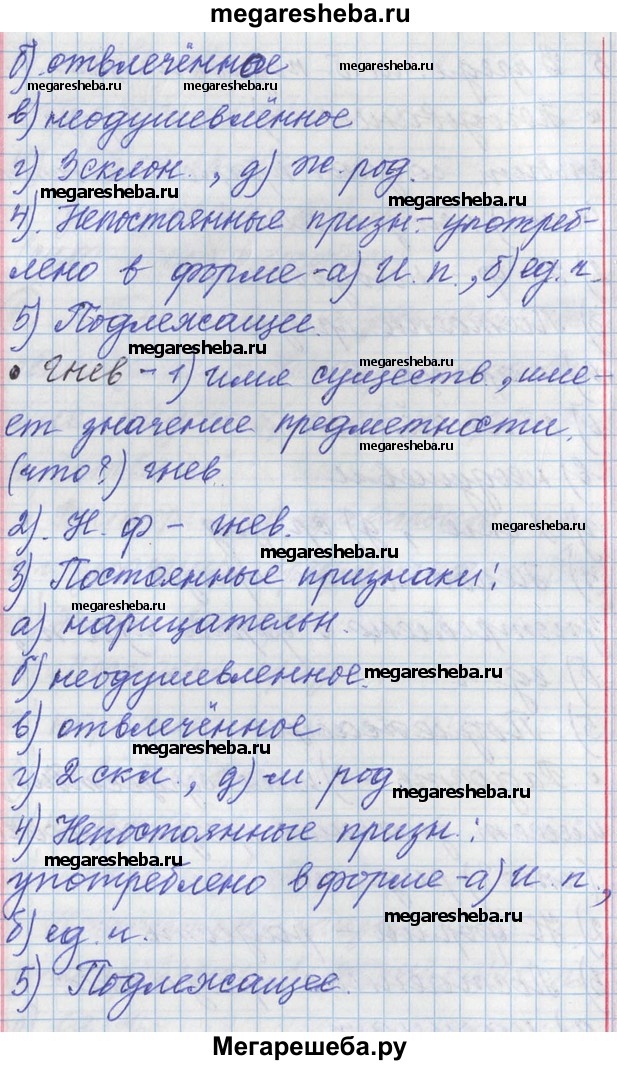 megaresheba.ru
б) отвлечённое
megaresheba.ru megaresheba.ru
в) неодушевлённое
г) 3 склон., д) ж. род.
megaresheba.ru megaresheba.ru
4). Непостоянные призн.- употреб-
лено в форме -а) И. п., б) ед. ч.
5) Подлежащее.
megaresheba.ru
• гнев - 1) имя существ., име-
ет значение предметности.
megaresheba.ru
(что?) гнев.
2). Н. ф - гнев.
megaresheba.ru megaresheba.ru
3) Постоянные признаки:
megaresheba.ru
а) нарицательн.
б) неодушевленное.
megaresheba.ru
в) отвлечённое
megaresheba.ru
г) 2 скл., д)-м. род
megaresheba.ru
4) Непостоянные призн.:
megaresheba.ru
употреблено в форме -а) И. п.,
б) ед. ч.
megaresheba.ru
5) Подлежащее.
Мегарешеба.ру